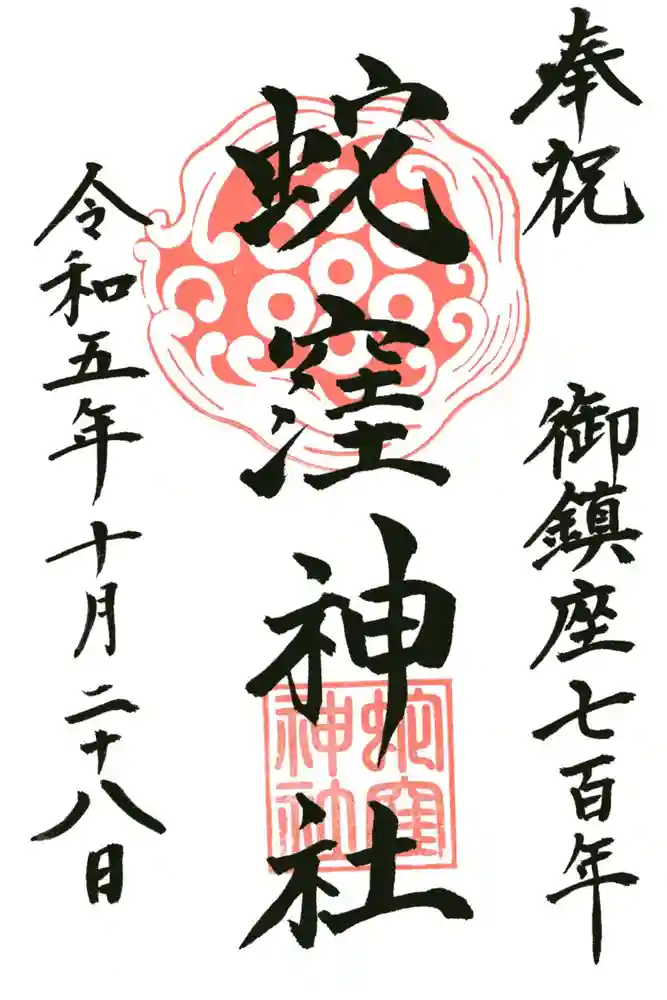 奉祝
御鎮座七百年
蛇窪神社
蛇窪神社
令和五年十月二十八日